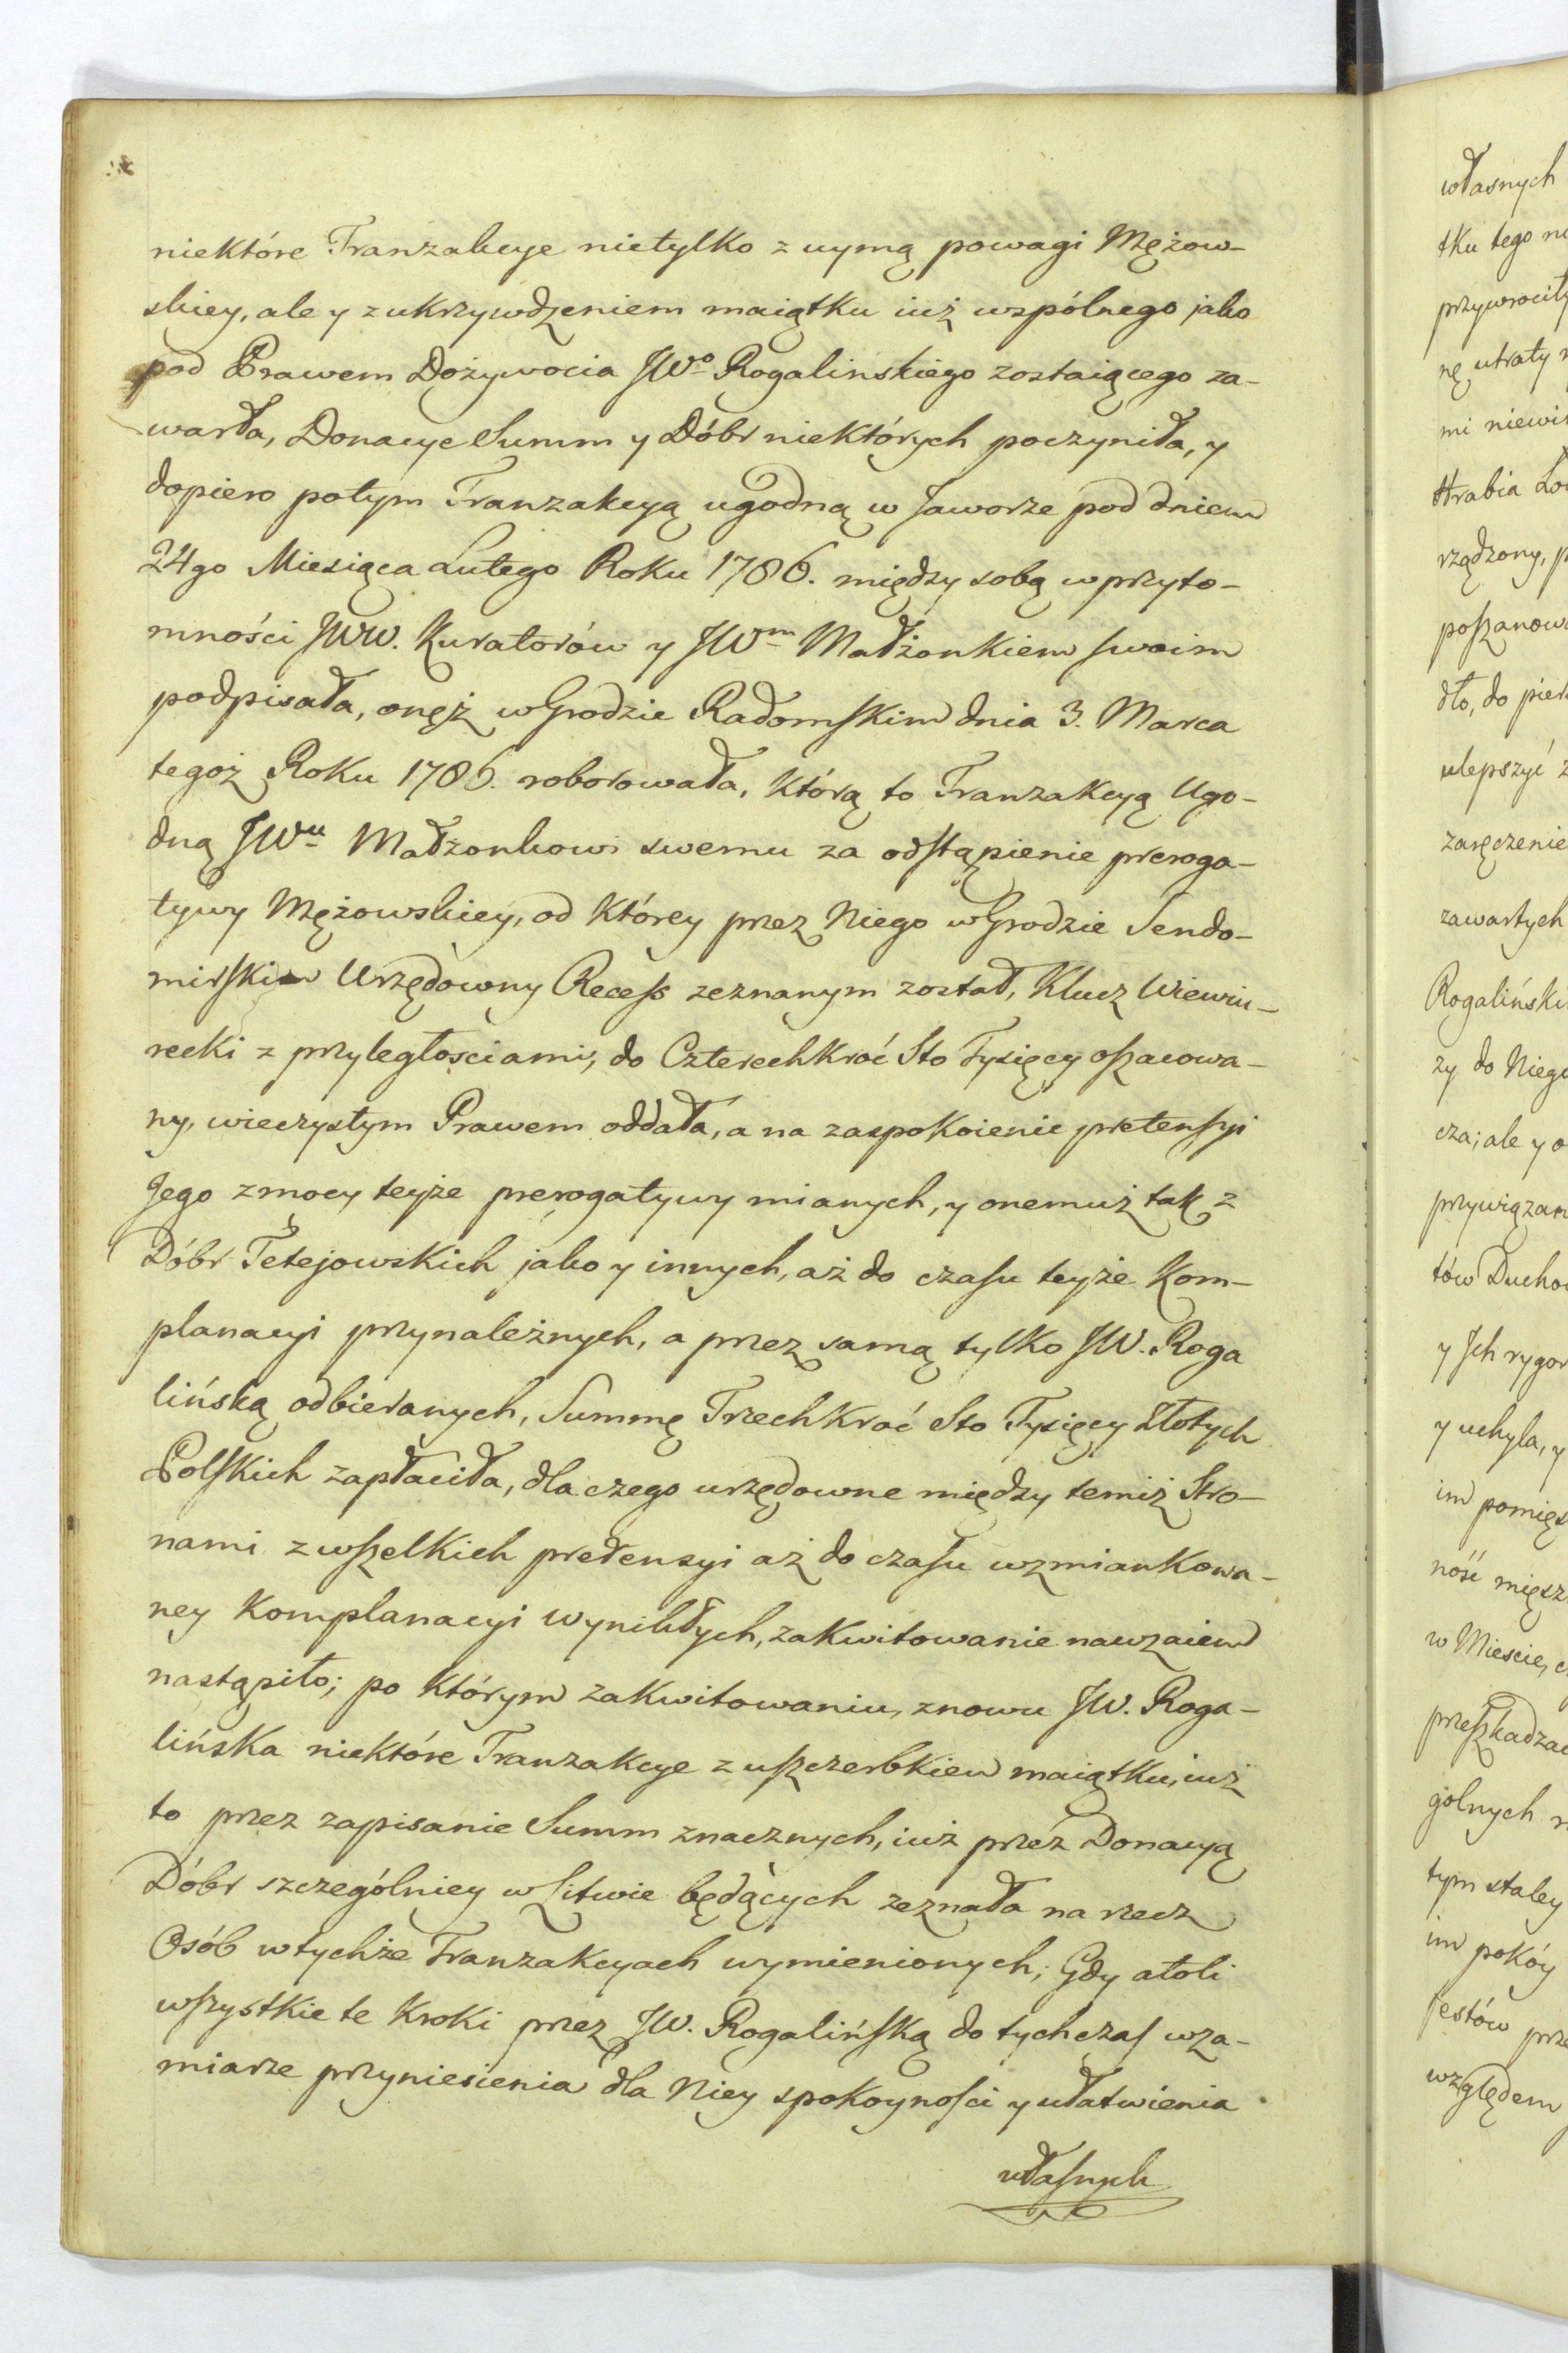 niektóre Tranzakcye nietylko z uymą powagi Mężow-
skiey, ale y z ukrzywdzeniem maiątku iuż wspólnego jako
pod Prawem Dożywocia JWo Rogalinskiego zostaiącego za-
warła, Donacye Summ y Dóbr niektórych poczyniła, y
dopiero potym Tranzakcyą ugodną w Jaworze pod dniem
24go Miesiąca Lutego Roku 1786. między sobą w przyto-
mności JWW. Kuratorów y JWm Małżonkiem swoim
podpisała, onęż w Grodzie Radomskim dnia 3. Marca
tegoż Roku 1786. roborowała, którą to Tranzakcyą Ugo-
dną JWu Małżonkowi swemu za odstąpienie preroga-
tywy Mężowskiey, od którey przez Niego w Grodzie Sendo-
mirskim Urzędowny Recess zeznanym został, Klucz Wiewiu-
recki z przyległościami, do Czterechkroć Sto Tysięcy oszacowa-
ny, wieczystym Prawem oddała, a na zaspokoienie pretensyi
Jego z mocy teyże prerogatywy mianych, y onemuż tak z
Dóbr Tetejowskich jako y innych, aż do czasu teyże Kom-
planacyi przynależnych, a przez samą tylko JW. Roga
lińską odbieranych, Summę Trzechkroć Sto Tysięcy Złotych
Polskich zapłaciła, dla czego urzędowne między temiż Stro-
nami z wszelkich pretensyi aż do czasu wzmiankowa-
ney Komplanacyi wynikłych, zakwitowanie nawzaiem
nastąpiło; po którym zakwitowaniu, znowu JW. Roga-
lińska niektóre Tranzakcye z uszczerbkiem maiątku, iuż
to przez zapisanie Summ znacznych, iuż przéz Donacyą
Dóbr szczególniey w Litwie będących zeznała na rzecz
Osób w tychże Tranzakcyach wymienionych; Gdy atoli
wszystkie te kroki przez JW. Rogalińską do tychczas w za-
miarze przyniesienia dla Niey spokoyności y ułatwienia
własnych
własnych
tku tego
przywrociły
nę utraty
mi
Hrabia
rządzony,
poszanow
dło, do
ulepszyć
zaręczenie
zawartych
Rogaliński
zy do Niego
cza; ale y
przywiązan
tów Ducho
y Jch rygor
y uchyla, y
im pomięs
ność mięsz
w Miescie,
przeszkadza
gólnych
tym staley
im pokóy
jestów prze
względem